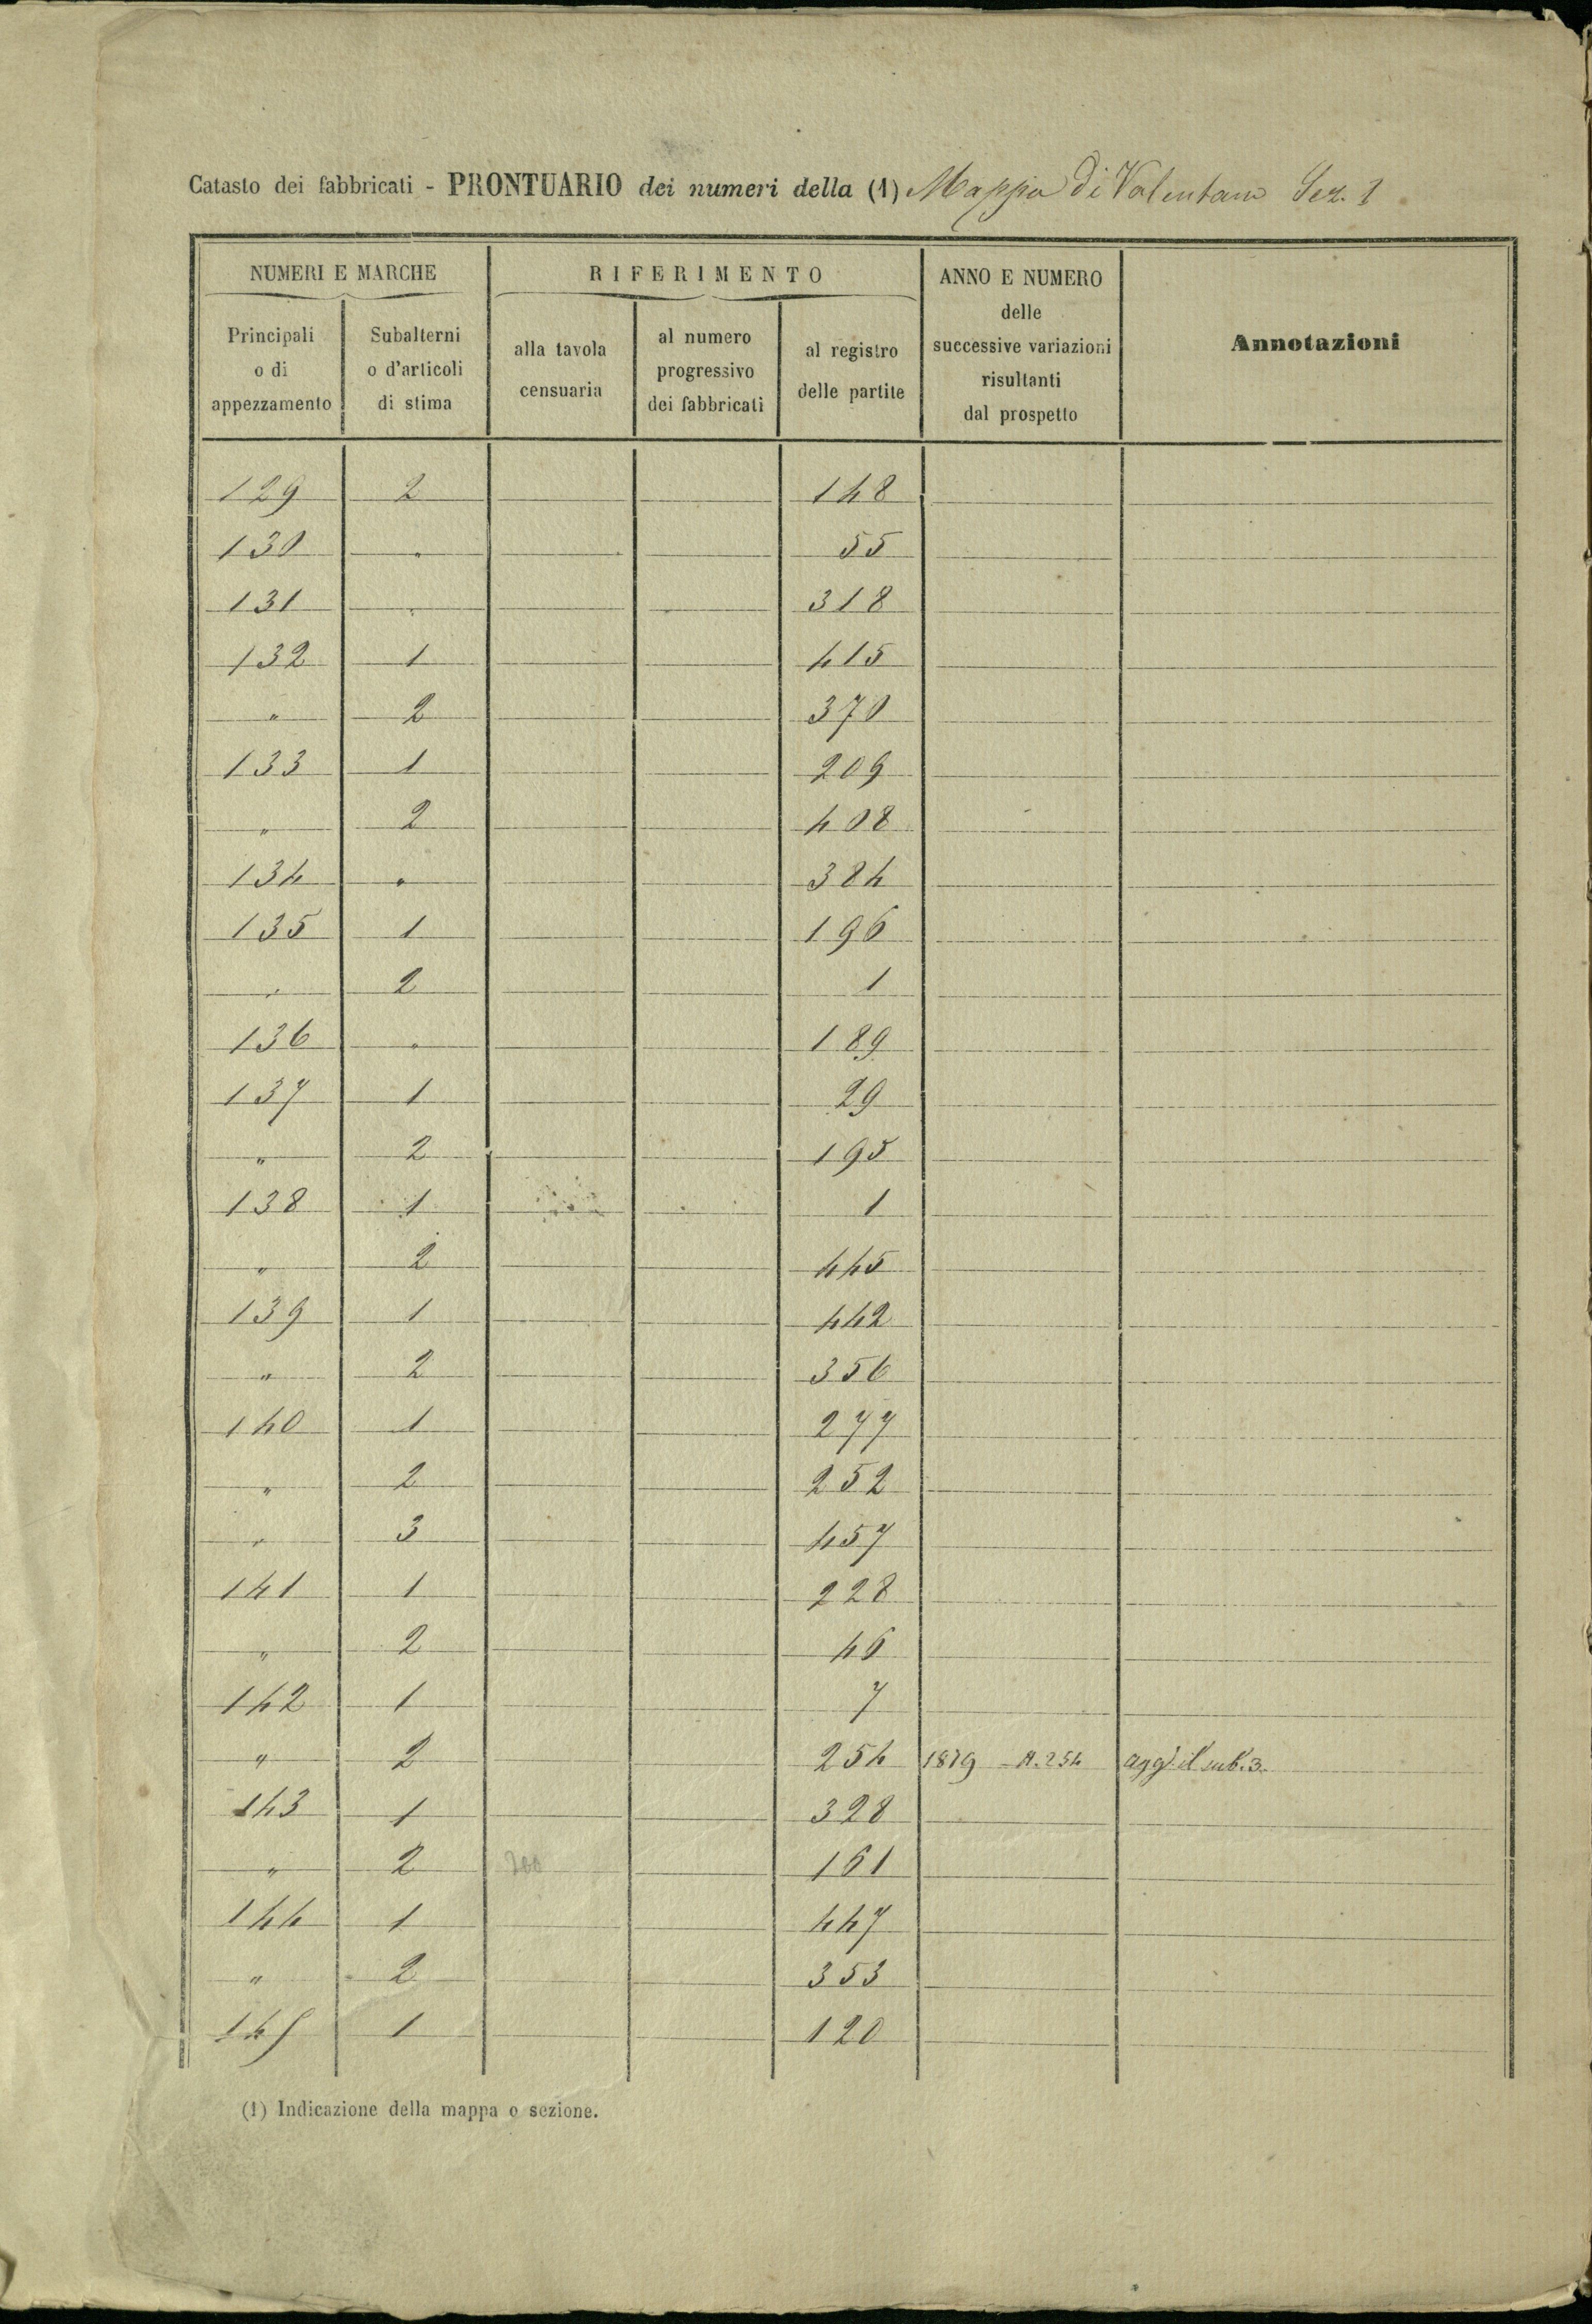 Catasto dei fabbricati - PRONTUARIO dei numeri della (1) Mappa di Valentano Sez. 1
NUMERI E MARCHE
RIFERIMENTO
ANNO E NUMERO
delle
successive variazioni
risultanti
dal prospetto
Annotazioni
Principali
o di
appezzamento
Subalterni
o d'articoli
di stima
alla tavola
censuaria
al numero
progressivo
dei fabbricati
al registro
delle partite
129 2 148
130 " 55
131 " 318
132 1 415
" 2 370
133 1 209
" 2 408
134 " 384
135 1 196
" 2 1
136 " 189
137 1 29
" 2 195
138 1 1
" 2 445
139 1 442
" 2 356
140 1 277
" 2 252
" 3 457
141 1 228
" 2 46
142 1 7
" 2 254 1879 - A. 254 agg. il sub. 3.
143 1 328
" 2 200 161
144 1 447
" 2 353
145 1 120
(1) Indicazione della mappa o sezione.